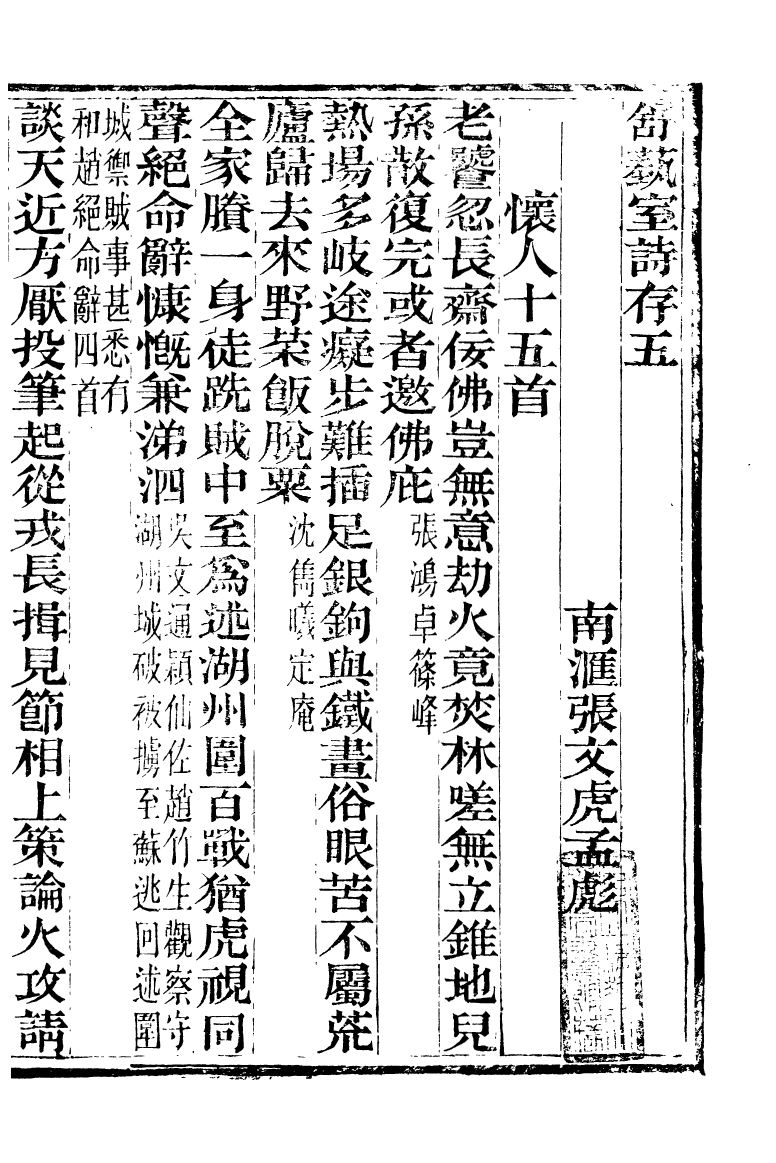 舒蓺室詩存五
南滙張文虎孟彪
懷人十五首
老饕忽長齋佞佛豈無意劫火竟焚林嗟無立錐地兒
孫散復完或者邀佛庇張鴻卓篠峰
熱場多岐途癡步難插足銀鉤與鐵畫俗眼苦不屬荒
廬歸去來野菜飯脫粟沈雋曦定庵
全家賸一身徒跣賊中至爲述湖州圍百戰猶虎視同
聲絕命辭慷慨兼涕泗吳文通穎仙佐趙竹生觀察守
湖州城破被擄至蘇逃回述圍
城禦賊事甚悉有
和趙絕命辭四首
談天近方厭投筆起從戎長揖見節相上策論火攻請